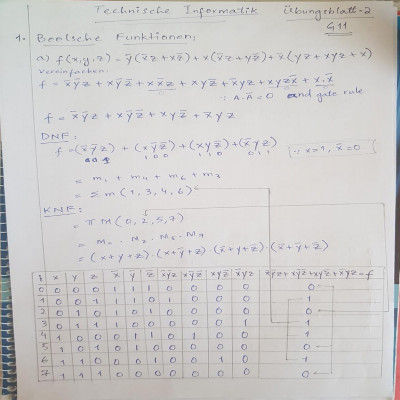 Technische Informatik Übungsblatt-2
G11
1. Boolsche Funktionen:
a) f(x,y,z) = ȳ(x̄z + xz̄) + x(x̄z + yz̄) + x̄(yz + xyz + x)
Vereinfachen:
f = x̄ȳz + xȳz̄ + xx̄z + xyz̄ + x̄yz + xyzx̄ + x.x̄
∵ A.Ā = 0 and gate rule
f = x̄ȳz + xȳz̄ + xyz̄ + x̄yz
DNF:
f = (x̄ȳz) + (xȳz̄) + (xyz̄) + (x̄yz) ∵ x=1, x̄=0
001 100 110 011
= m₁ + m₄ + m₆ + m₃
= Σm(1,3,4,6)
KNF:
= πM(0,2,5,7)
= M₀ . M₂ . M₅ . M₇
= (x+y+z)·(x+ȳ+z)·(x̄+y+z̄)·(x̄+ȳ+z̄)
x y z x̄ ȳ z̄ x̄ȳz xȳz̄ xyz̄ x̄yz x̄ȳz+xȳz̄+xyz̄+x̄yz=f
0 0 0 0 1 1 1 0 0 0 0 0
1 0 0 1 1 1 0 1 0 0 0 1
2 0 1 0 1 0 1 0 0 0 0 0
3 0 1 1 1 0 0 0 0 0 1 1
4 1 0 0 0 1 1 0 1 0 0 1
5 1 0 1 0 1 0 0 0 0 0 0
6 1 1 0 0 0 1 0 0 1 0 1
7 1 1 1 0 0 0 0 0 0 0 0